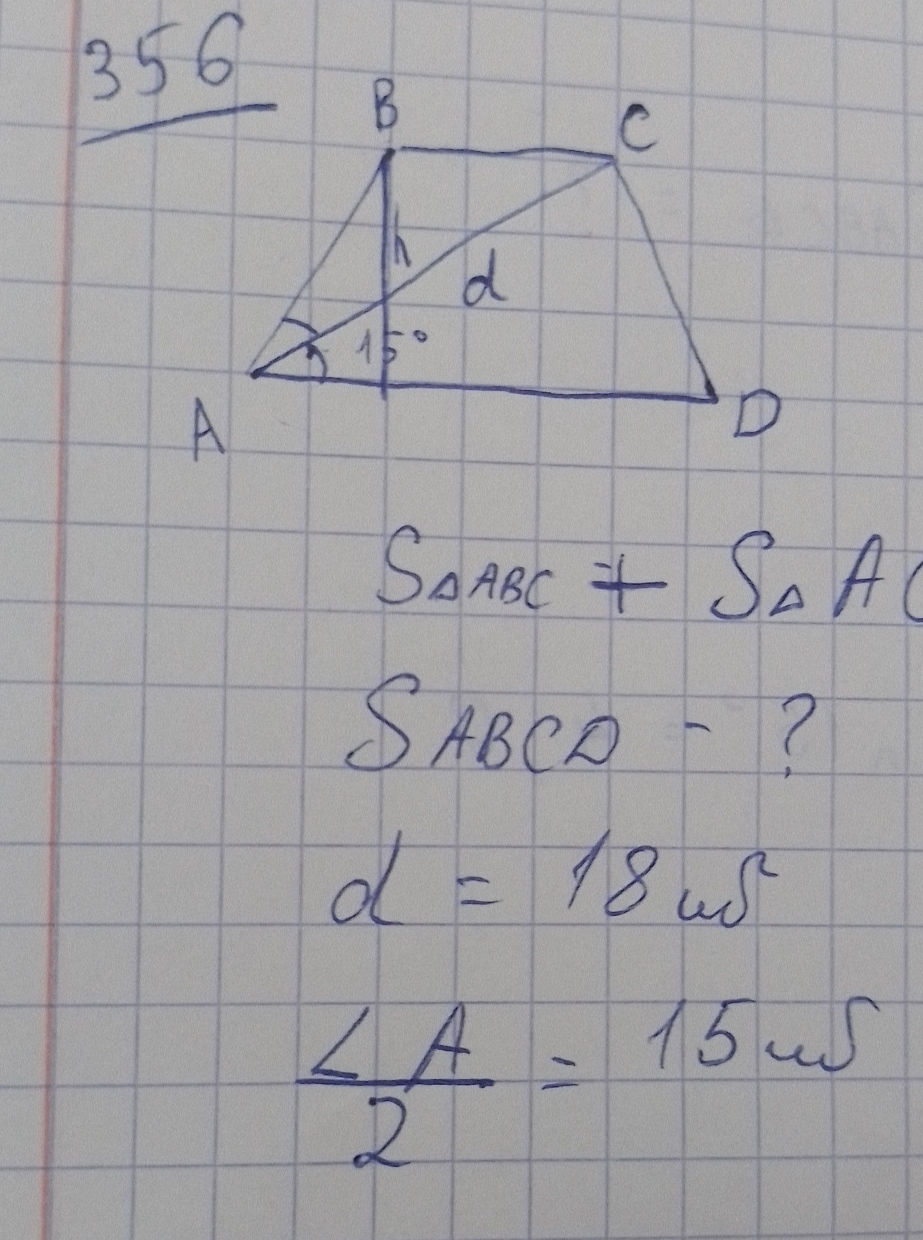 356
B
C
h
d
15°
A
D
S△ABC + S△A
SABCD - ?
d = 18
∠A/2 = 15